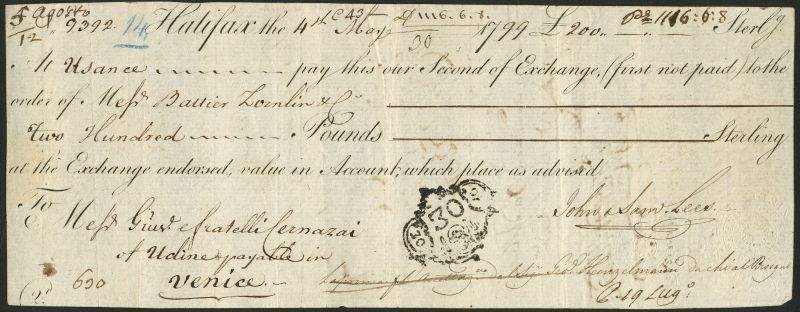 5 Agosto
12
9392. 14 Halifax the 4th May 43 D 1116.6.8.
30
1799 £200,, ,, Ps 1116:6:8 Sterlg.
At Usance pay this our Second of Exchange, (first not paid) to the
order of Messrs Battier Zornlin & Co
Two Hundred Pounds Sterling
at the Exchange endorsed, value in Account, which place as advised
To
Messrs Giuse e fratelli Cernazai
of Udine payable in
Venice.
630
30
John & Sam Lees
Heinzelmann
19 Lugo